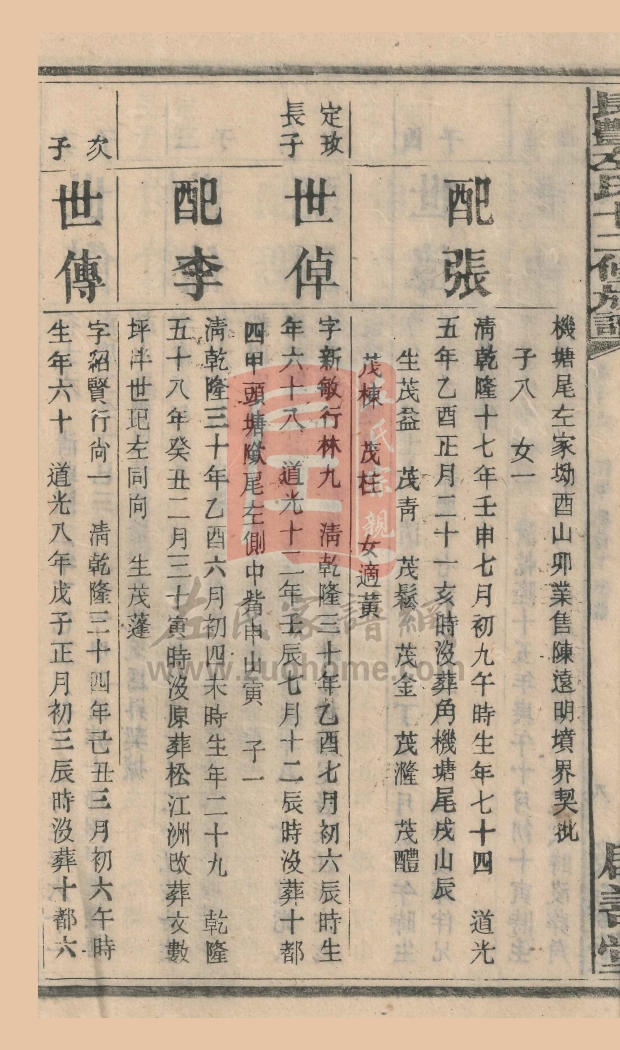 長豐左氏十二修族譜
機塘尾左家坳酉山卯業售陳遠明墳界契批
子八　女一
配張
清乾隆十七年壬申七月初九午時生年七十四　道光
五年乙酉正月二十亥時沒葬角機塘尾戌山辰
生茂益　茂青　茂鬆　茂金　茂瀧　茂醴
茂棟　茂柱　女適黃
定玫
長子
世倬
字新敏行林九　清乾隆三十年乙酉七月初六辰時生
年六十八　道光十二年壬辰七月十二辰時沒葬十都
四甲頭塘尾左側中嘴申山寅　子一
配李
清乾隆三十年乙酉六月初四未時生年二十九　乾隆
五十八年癸丑二月三十寅時沒原葬松江洲改葬文數
坪半世玘左同向　生茂蓬
次
子
世傳
字紹賢行尚一　清乾隆三十四年己丑三月初六午時
生年六十　道光八年戊子正月初三辰時沒葬十都六
左氏家譜網
www.zuohome.com